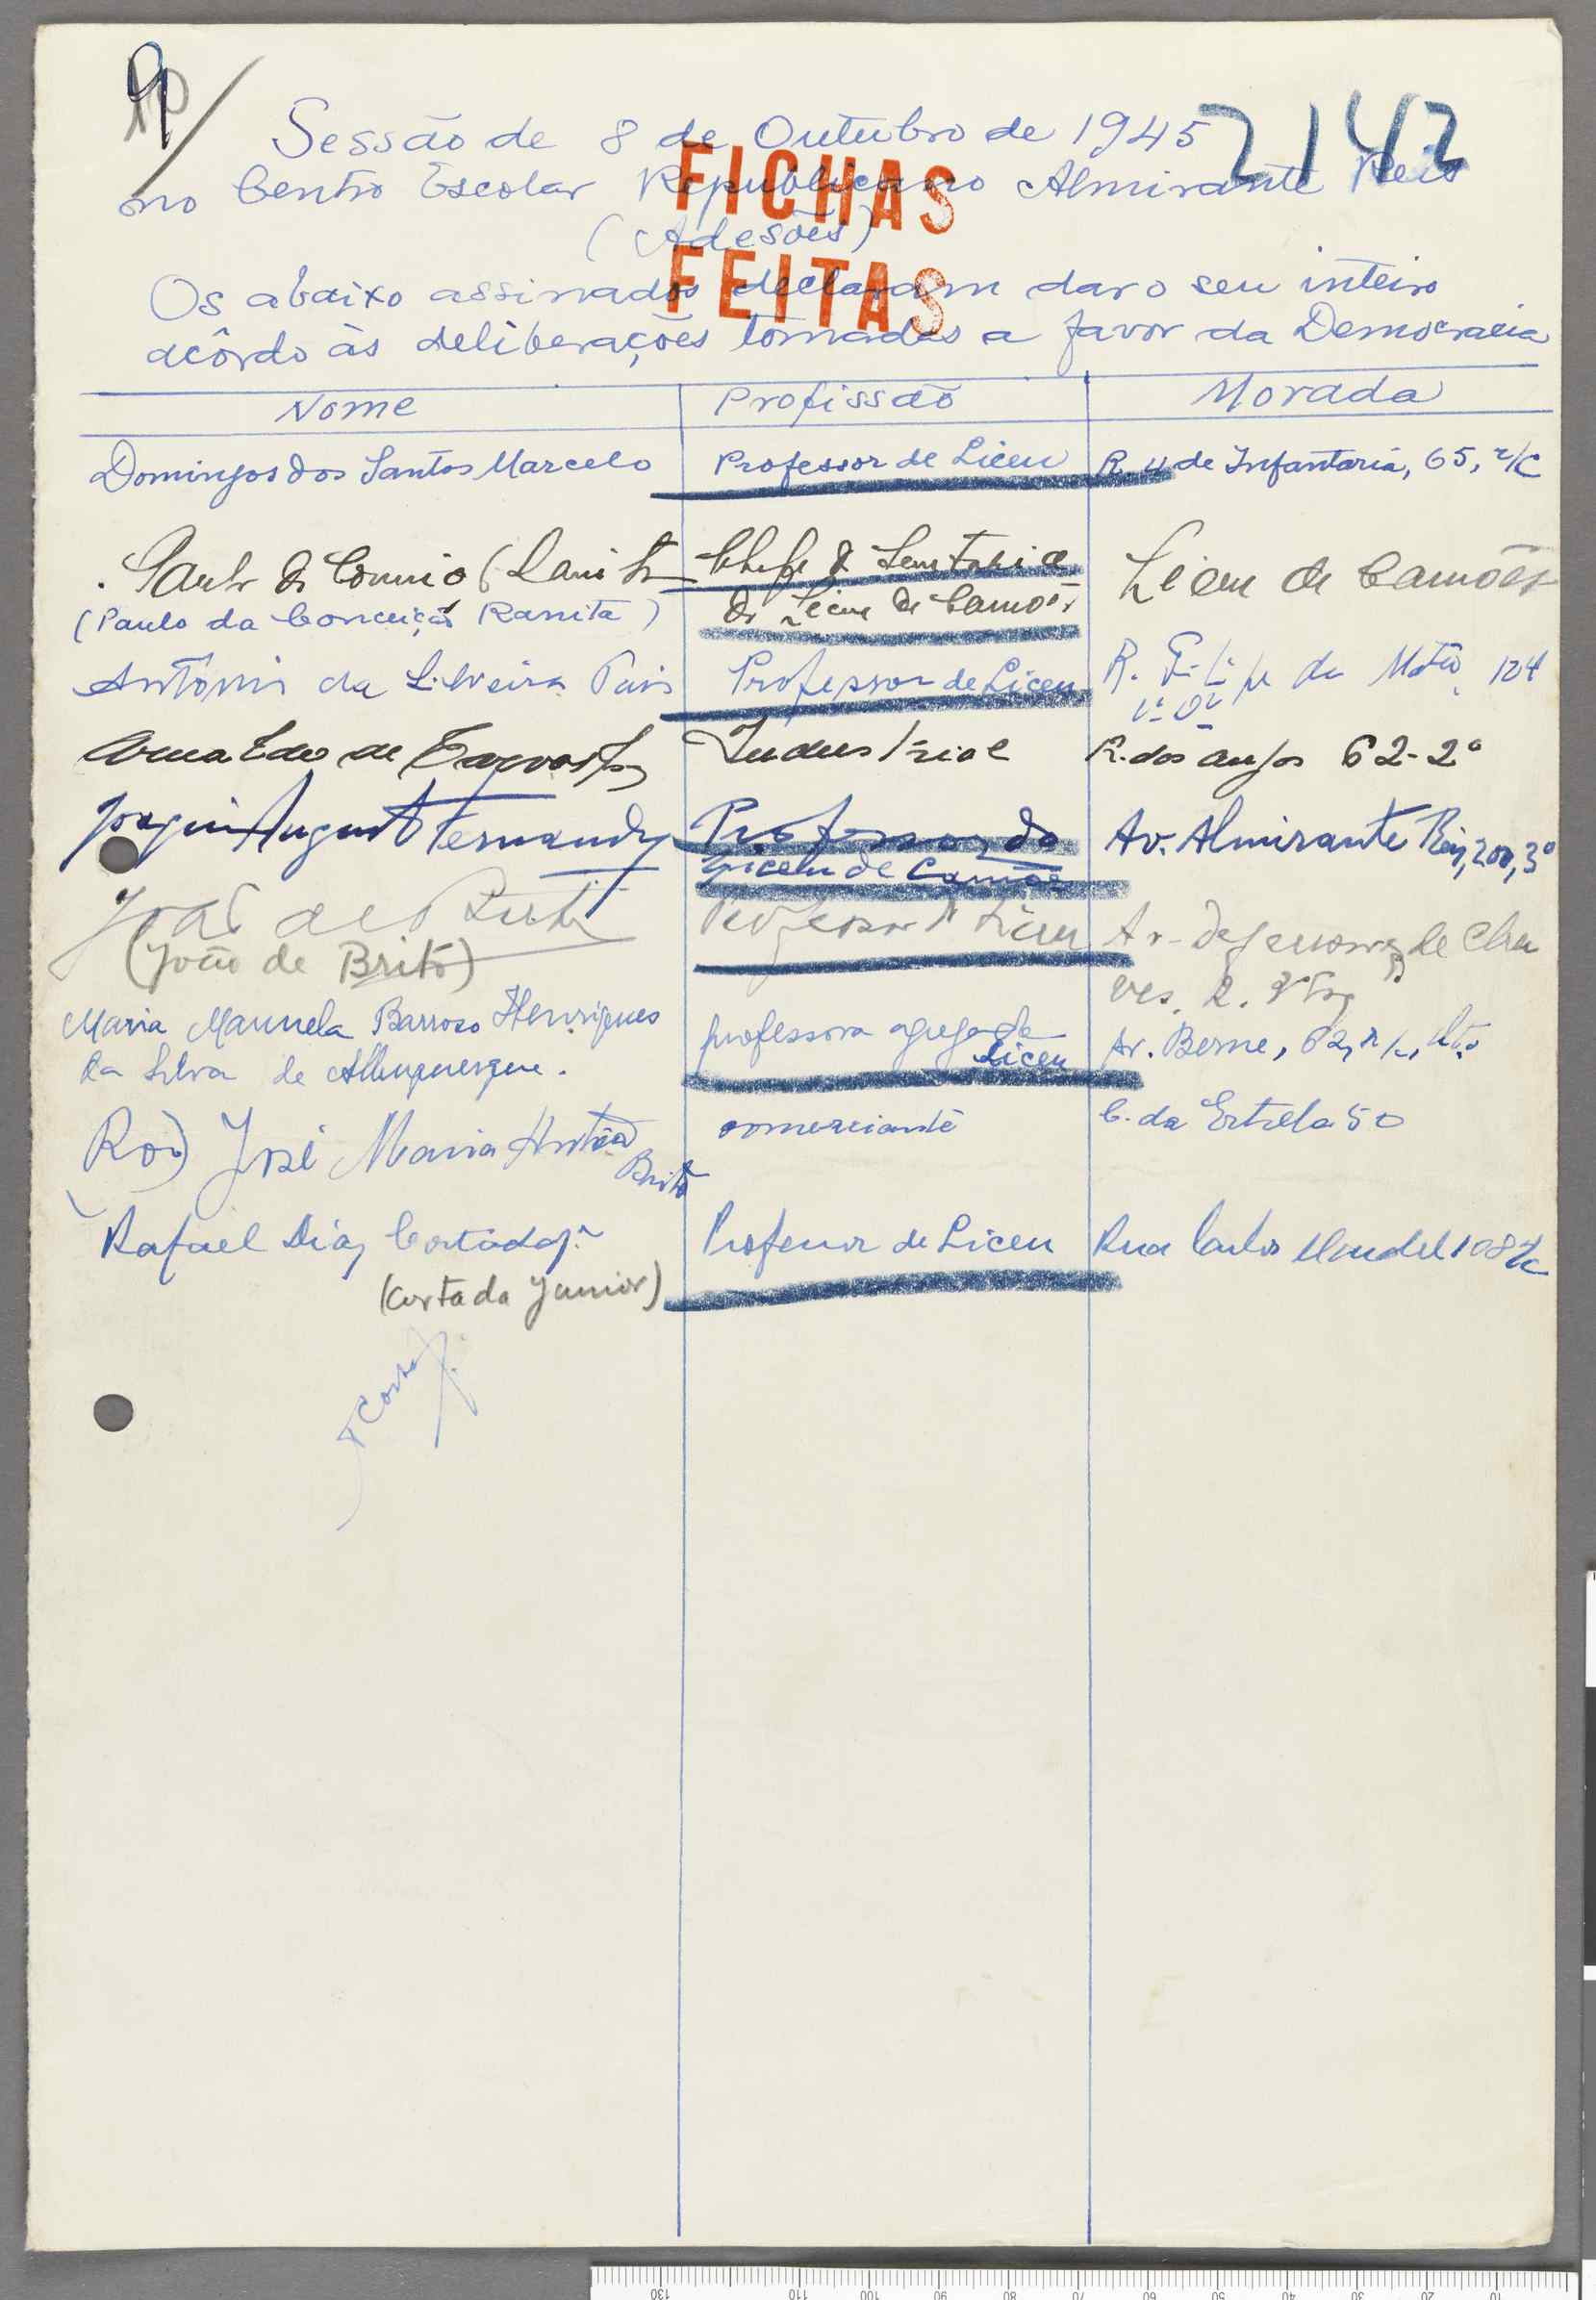 2142
Sessão de 8 de Outubro de 1945
no Centro Escolar Republicano Almirante Reis
(Adesões)
FICHAS
FEITAS
Os abaixo assinados declaram dar o seu inteiro
acôrdo às deliberações tomadas a favor da Democracia
Nome Profissão Morada
Domingos dos Santos Marcelo Professor de Liceu R. 4 de Infantaria, 65, r/c
Chefe de Secretaria Liceu de Camões
do Liceu de Camões
(Paulo da Conceição Ranita)
António da Silveira Pais Professor de Liceu R. Filipe da Mata, 124
Arnaldo de Industrial R. dos Anjos 62-2º
Joaquim Augusto Fernandes Professor do Av. Almirante Reis, 200, 3º
Liceu de Camões
João de Brito Professor Liceu Av. Defensores de Cha
(João de Brito) ves, 2. 3º Esq
Maria Manuela Barroso Henriques professora agregada Av. Berne, 62, r/c, dto.
da Silva de Albuquerque. Liceu
José Maria Brito comerciante C. da Estrela 50
Rafael Diaz Cortada jr. Professor de Liceu Rua Carlos Mardel 108 r/c
(Cortada Junior)